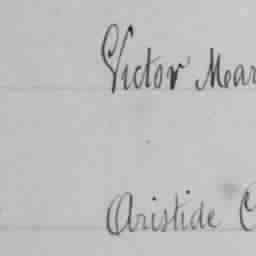 Victor Mar
Aristide C